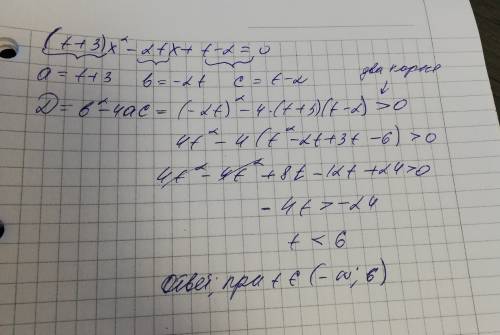 (t+3)x² - 2tx + t-2 = 0
a = t+3   b = -2t   c = t-2
два корня
D = b² - 4ac = (-2t)² - 4·(t+3)(t-2) > 0
4t² - 4(t² - 2t + 3t - 6) > 0
4t² - 4t² + 8t - 12t + 24 > 0
- 4t > -24
t < 6
Ответ: при t ∈ (-∞; 6)